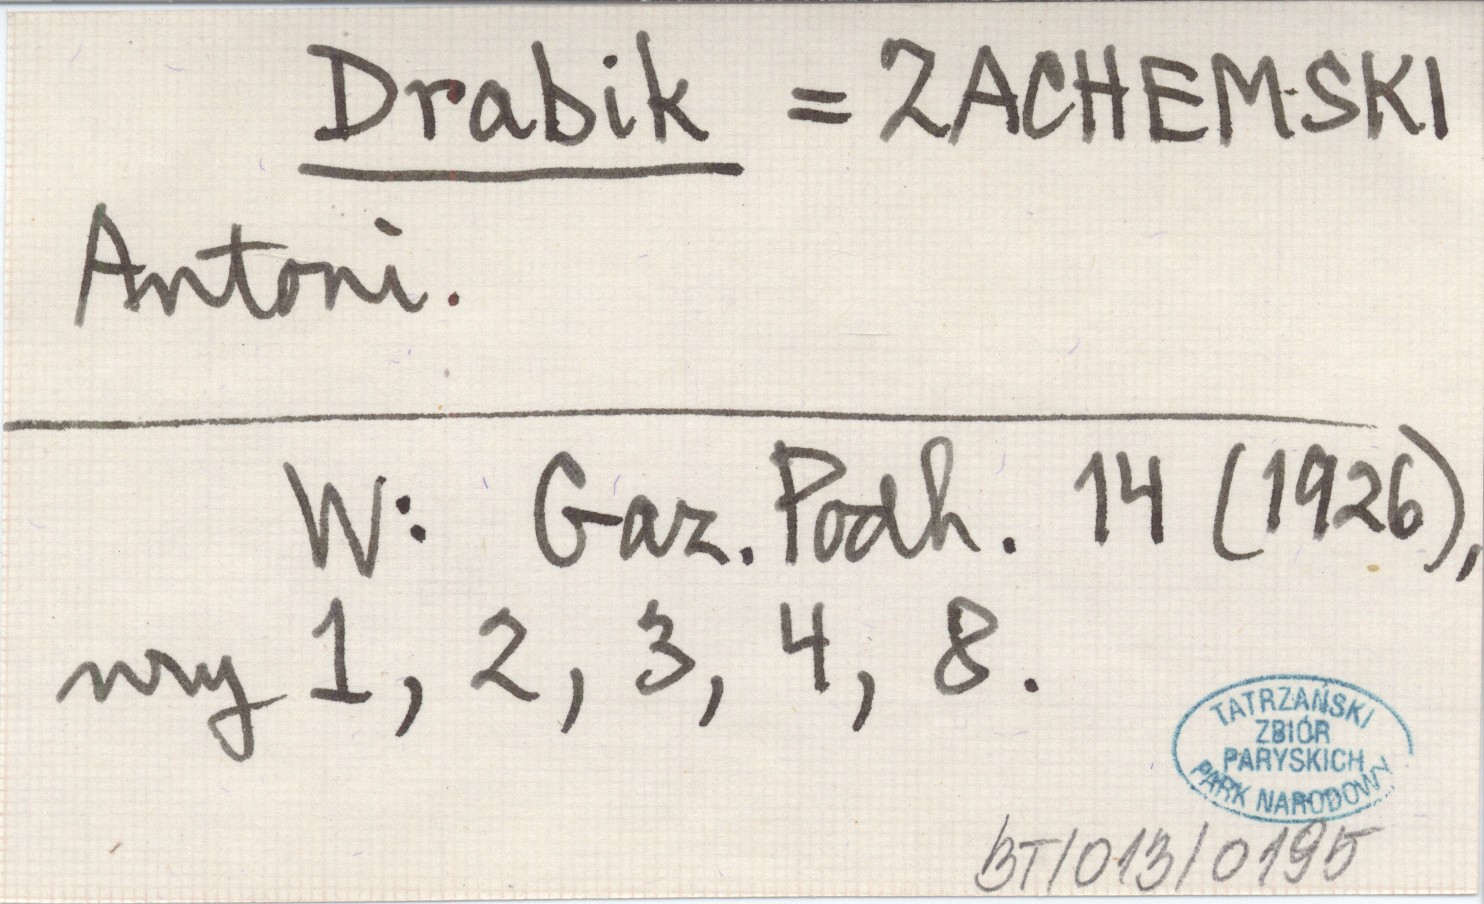 Drabik = ZACHEMSKI
Antoni.
W: Gaz. Podh. 14 (1926),
nry 1, 2, 3, 4, 8.
TATRZAŃSKI
ZBIÓR
PARYSKICH
PARK NARODOWY
BT/013/0195